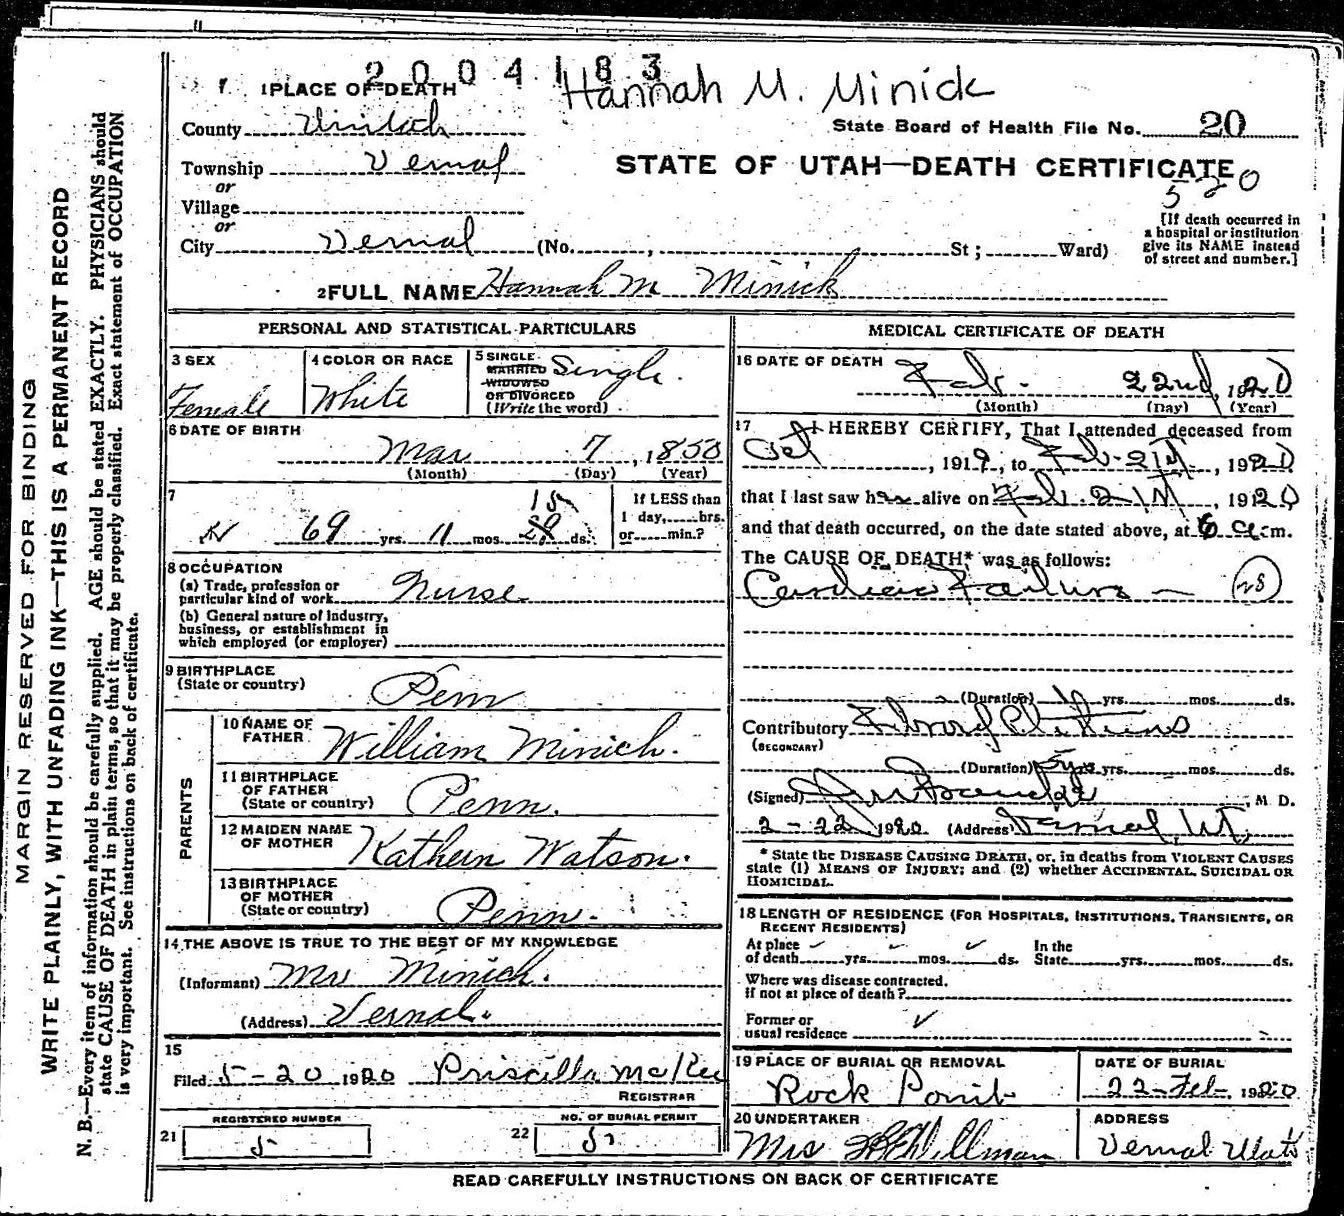 2004183
Hannah M. Minick
1 PLACE OF DEATH
County Uintah
State Board of Health File No. 20
Township Vernal
STATE OF UTAH—DEATH CERTIFICATE
520
or
Village
or
City Vernal (No. , St; Ward)
[If death occurred in
a hospital or institution
give its NAME instead
of street and number.]
2 FULL NAME Hannah M Minick
PERSONAL AND STATISTICAL PARTICULARS
3 SEX
Female
4 COLOR OR RACE
White
5 SINGLE
MARRIED
WIDOWED
OR DIVORCED
(Write the word)
Single.
6 DATE OF BIRTH
Mar 7, 1850
(Month) (Day) (Year)
7
69 yrs. 11 mos. 15 ds.
If LESS than
1 day, hrs.
or min.?
8 OCCUPATION
(a) Trade, profession or
particular kind of work Nurse
(b) General nature of industry,
business, or establishment in
which employed (or employer)
9 BIRTHPLACE
(State or country) Penn
PARENTS
10 NAME OF
FATHER William Minich.
11 BIRTHPLACE
OF FATHER
(State or country) Penn.
12 MAIDEN NAME
OF MOTHER Kathern Watson.
13 BIRTHPLACE
OF MOTHER
(State or country) Penn.
14 THE ABOVE IS TRUE TO THE BEST OF MY KNOWLEDGE
(Informant) Mr Minich.
(Address) Vernal.
15
Filed 5-20 1920 Priscilla McKee
REGISTRAR
REGISTERED NUMBER
21 5
NO. OF BURIAL PERMIT
22 5
MEDICAL CERTIFICATE OF DEATH
16 DATE OF DEATH
Feb. 22nd, 1920
(Month) (Day) (Year)
17 I HEREBY CERTIFY, That I attended deceased from
Oct , 1919, to Feb. 21st, 1920
that I last saw her alive on Feb. 21st, 1920
and that death occurred, on the date stated above, at 6 a.m.
The CAUSE OF DEATH* was as follows:
Cardiac Failure
(Duration) yrs. mos. ds.
Contributory
(SECONDARY)
(Duration) 5 yrs. mos. ds.
(Signed) M. D.
2-22 1920 (Address) Vernal, Ut.
* State the DISEASE CAUSING DEATH, or, in deaths from VIOLENT CAUSES
state (1) MEANS OF INJURY; and (2) whether ACCIDENTAL, SUICIDAL OR
HOMICIDAL.
18 LENGTH OF RESIDENCE (FOR HOSPITALS, INSTITUTIONS, TRANSIENTS, OR
RECENT RESIDENTS)
At place
of death yrs. mos. ds.
In the
State yrs. mos. ds.
Where was disease contracted,
if not at place of death?
Former or
usual residence
19 PLACE OF BURIAL OR REMOVAL
Rock Ponit
DATE OF BURIAL
22-Feb-1920
20 UNDERTAKER
Mrs Hillman
ADDRESS
Vernal Utah
READ CAREFULLY INSTRUCTIONS ON BACK OF CERTIFICATE
MARGIN RESERVED FOR BINDING
WRITE PLAINLY, WITH UNFADING INK—THIS IS A PERMANENT RECORD
N. B.—Every item of information should be carefully supplied. AGE should be stated EXACTLY. PHYSICIANS should
state CAUSE OF DEATH in plain terms, so that it may be properly classified. Exact statement of OCCUPATION
is very important. See instructions on back of certificate.